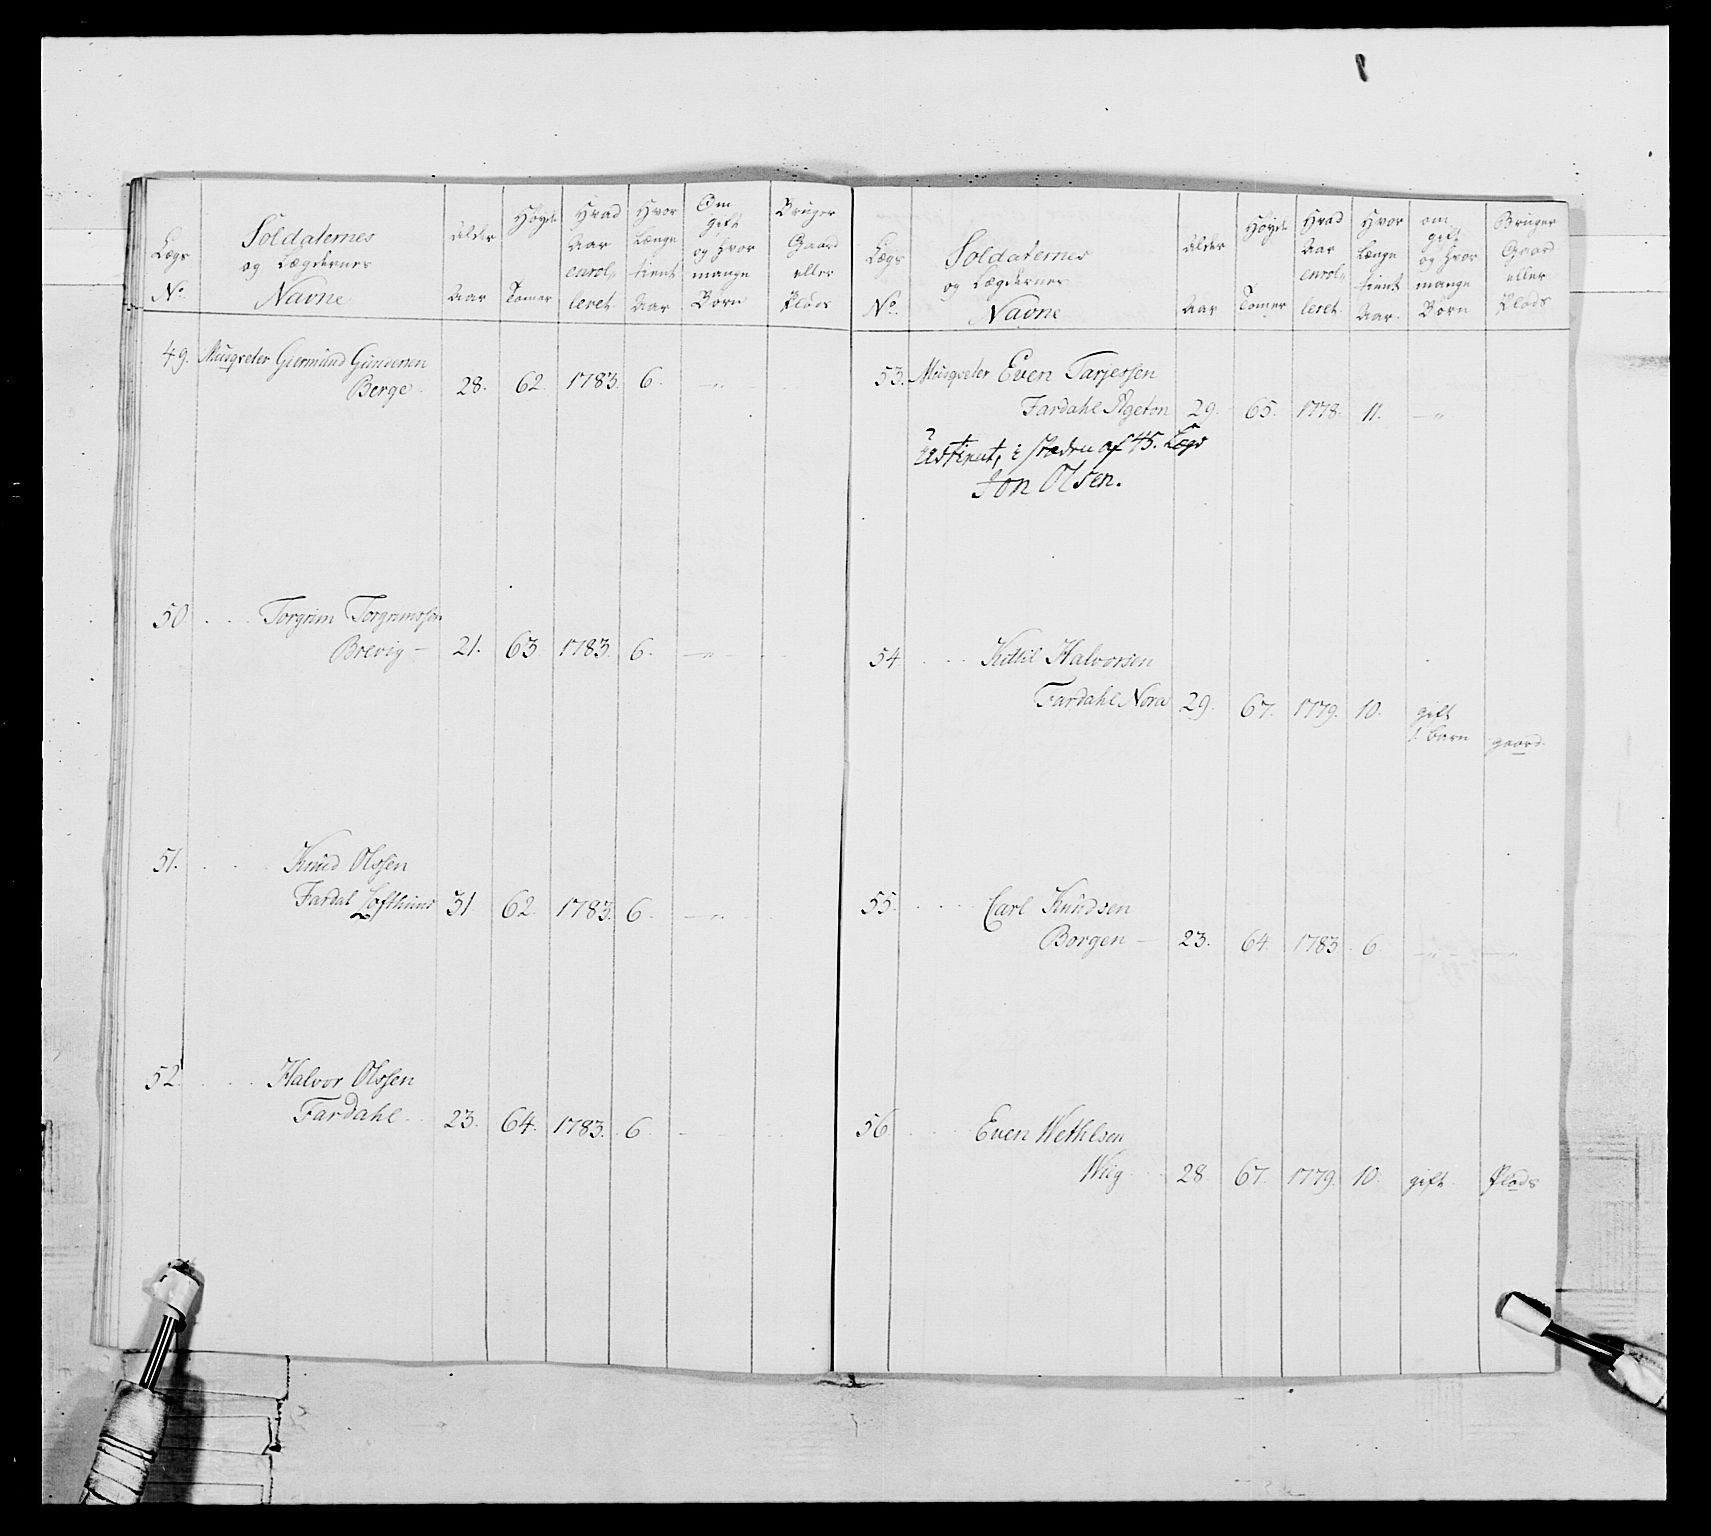 Lægs
No.
Soldaternes
og Lægdernes
Navne
Alder
Aar
Høyde
Tomer
Hvad
Aar
enrol„
leret
Hvor
Længe
tient
Aar
Om
gift
og hvor
mange
Børn
Bruger
Gaard
eller
Plads
49. Musqveter Giermund Gundersen
Berge 28. 62. 1783. 6. — „ —
50 Torgrim Torgrimssøn
Brevig — 21. 63. 1783. 6. — „ —
51. Knud Olssen
Fardal Lofthuus 31 62. 1783. 6. — „ —
52 Halvor Olssen
Fardahl 23. 64. 1783. 6.
Lægs
No.
Soldaternes
og Lægdernes
Navne
Alder
Aar
Høyde
Tomer
Hvad
Aar
enrol„
leret
Hvor
Længe
tient
Aar.
om
gift
og hvor
mange
Børn
Bruger
Gaard
eller
Plads
53. Musqveter Even Tarjessen
Fardahl Ageton 29. 65. 1778. 11. — „
Udtient, i stæden af 45. Lægd
Jon Olsen.
54 Kittil Halvorsen
Fardahl Nora 29. 67. 1779. 10. gift
1. barn gaard.
55. Carl Knudsen
Borgen — 23. 64. 1783. 6. — „ — — „
56 Even Wethlsen
Wiig 28. 67. 1779. 10. gift Plads